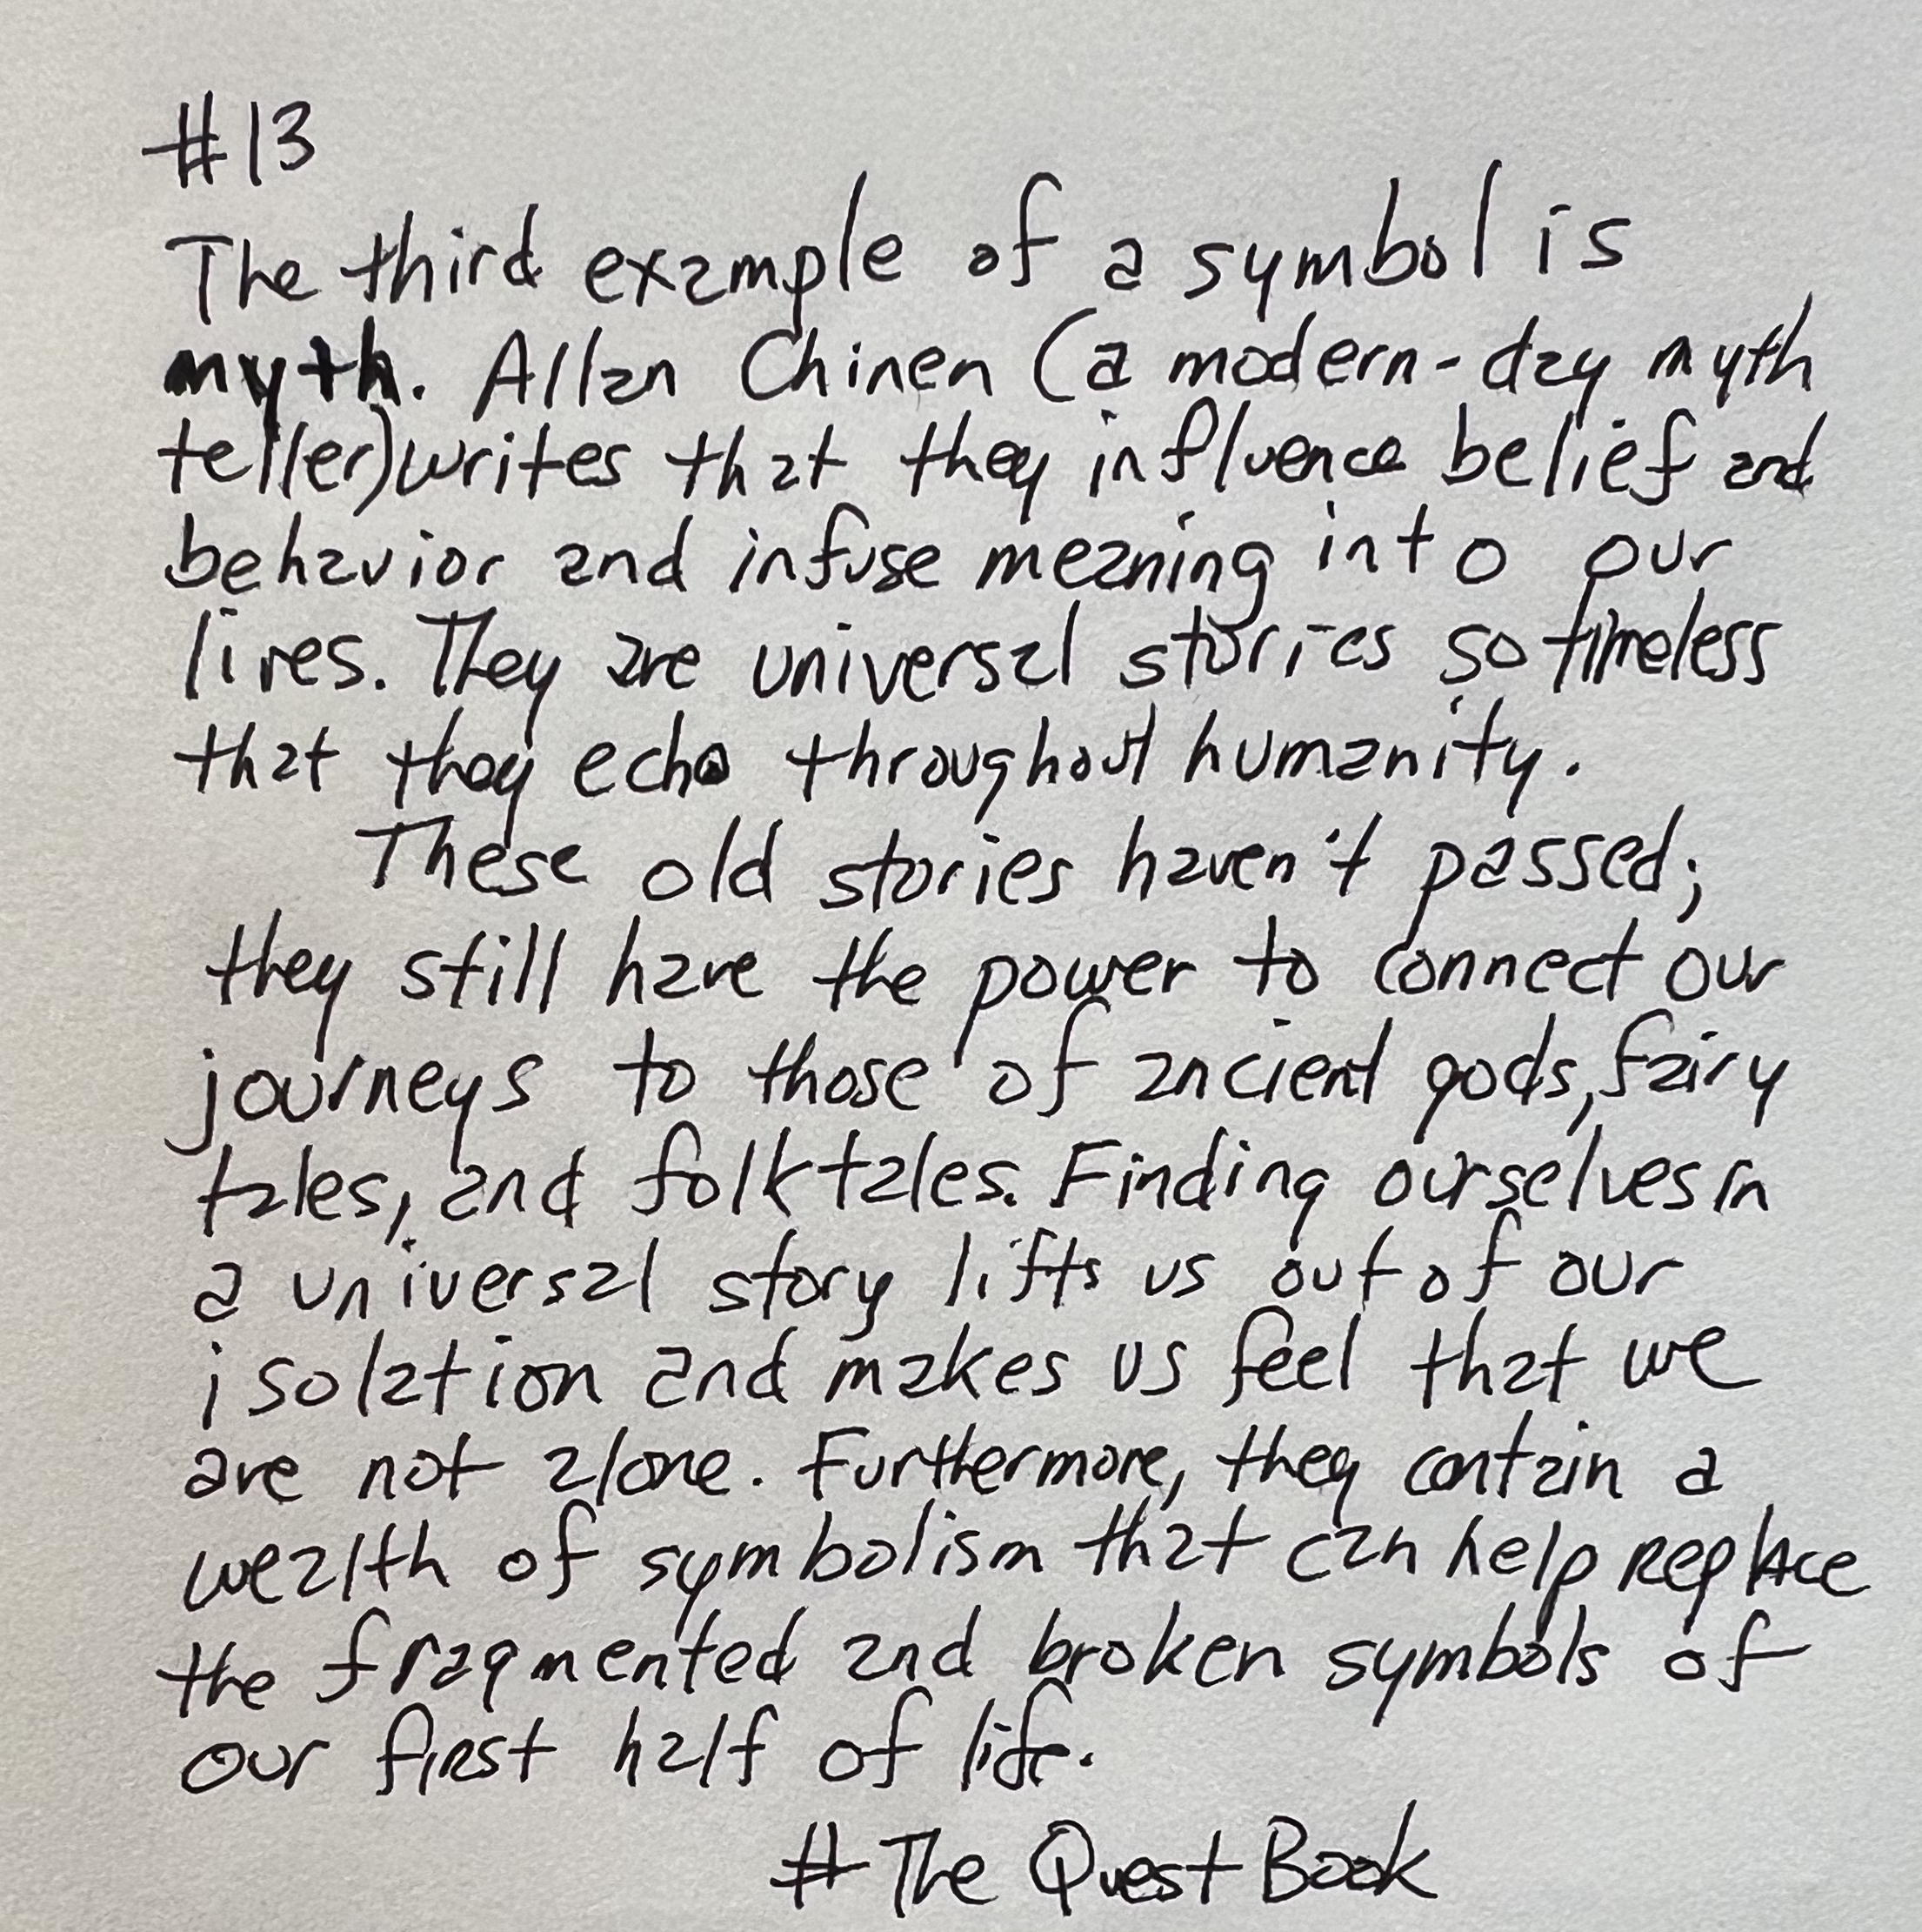 #13
The third example of a symbol is
myth. Allan Chinen (a modern-day myth
teller) writes that they influence belief and
behavior and infuse meaning into our
lives. They are universal stories so timeless
that they echo throughout humanity.
These old stories haven't passed;
they still have the power to connect our
journeys to those of ancient gods, fairy
tales, and folktales. Finding ourselves in
a universal story lifts us out of our
isolation and makes us feel that we
are not alone. Furthermore, they contain a
wealth of symbolism that can help replace
the fragmented and broken symbols of
our first half of life.
# The Quest Book